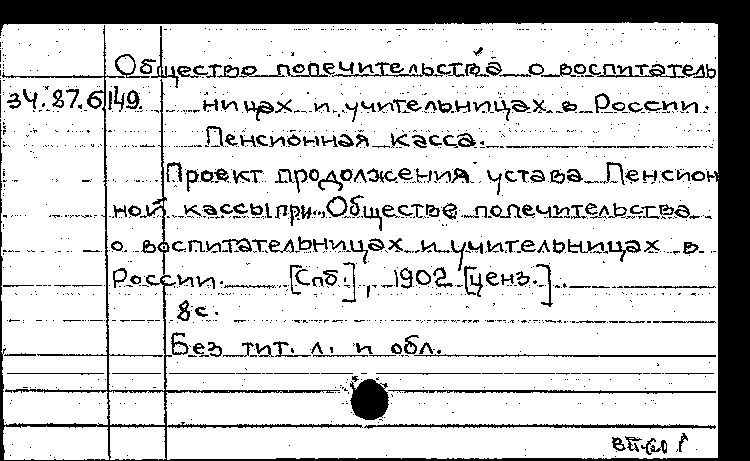 Общество попечительства о воспитатель
34.87.6/149. ницах и учительницах в России.
Пенсионная касса.
Проект продолжения устава Пенсион
ной кассы при Обществе попечительства
о воспитательницах и учительницах в
России. [Спб.], 1902 [ценз.].
8с.
Без тит. л. и обл.